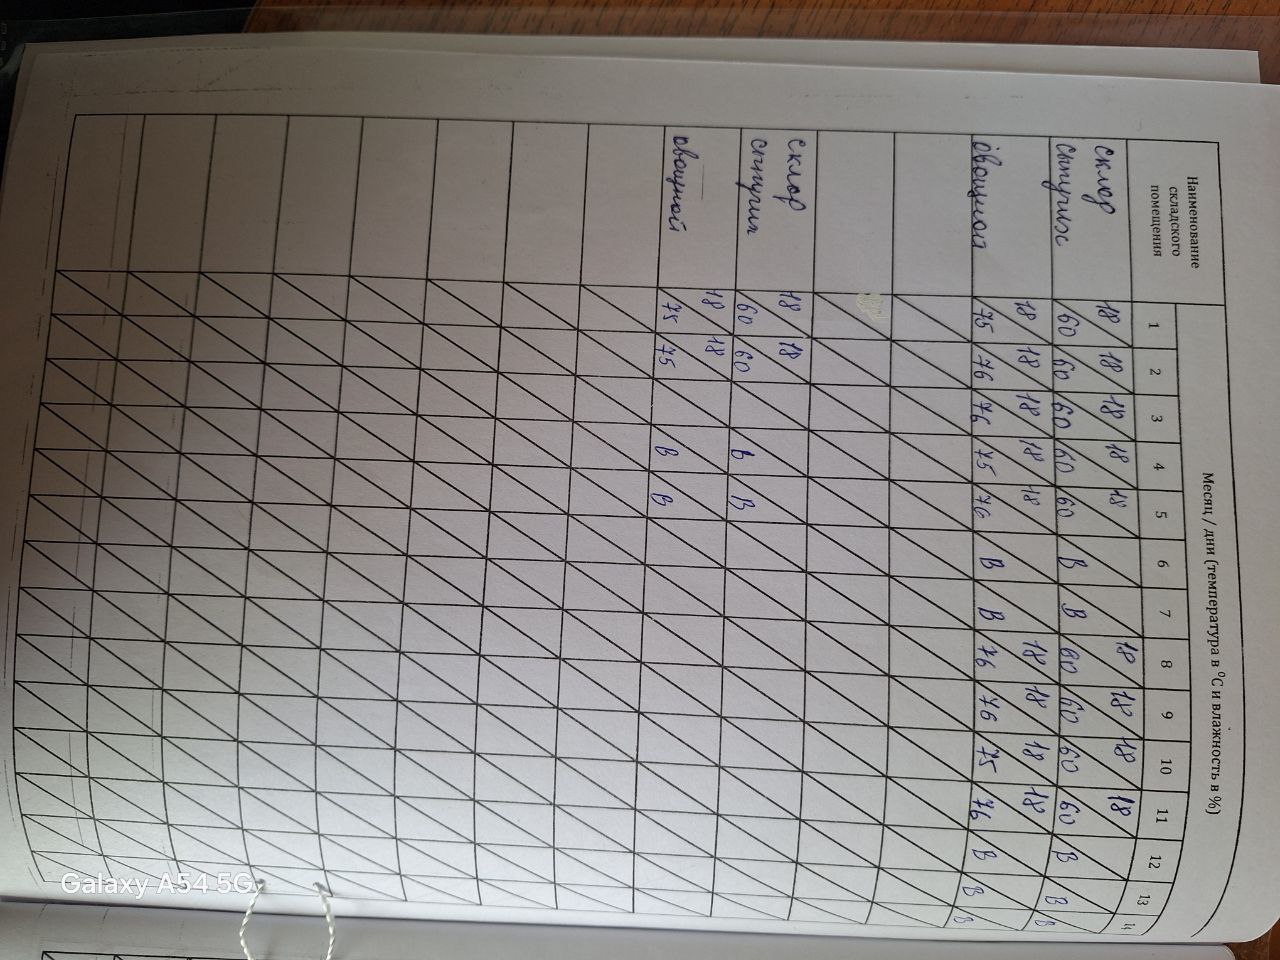 Наименование
складского
помещения
Месяц / дни (температура в °С и влажность в %)
1 2 3 4 5 6 7 8 9 10 11 12 13 14
склад
сыпучих
18 18 18 18 18 18 18 18 18
60 60 60 60 60 В В 60 60 60 60 В В В
овощной
18 18 18 18 18 18 18 18 18
75 76 76 75 76 В В 76 76 75 76 В В В
склад
сыпучих
18 18
60 60 В В
овощной
18 18
75 75 В В
Galaxy A54 5G